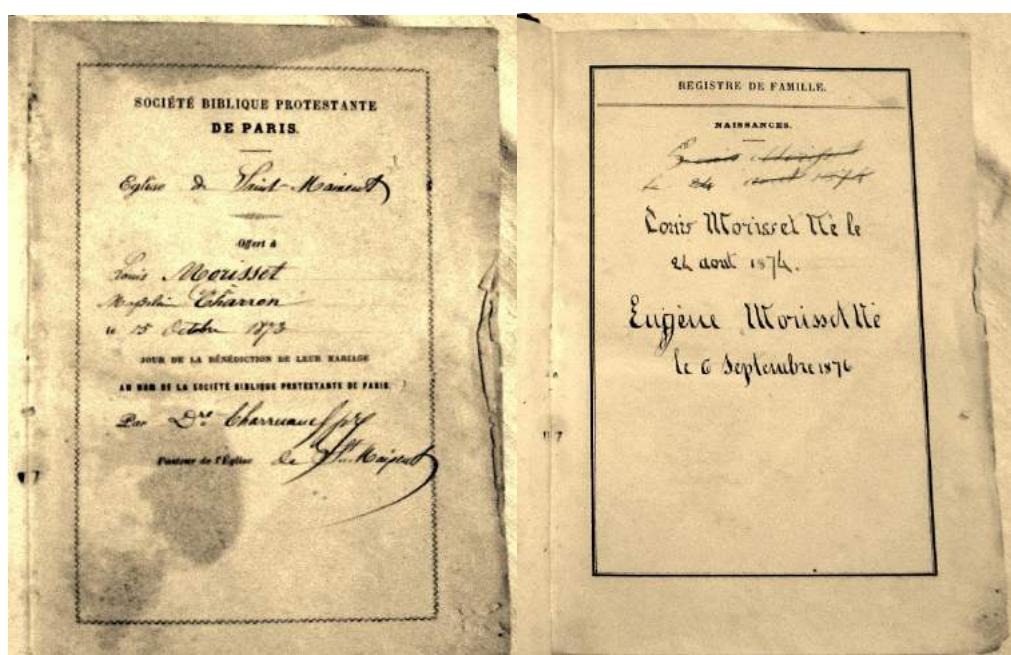 SOCIÉTÉ BIBLIQUE PROTESTANTE
DE PARIS.
Eglise de Saint-Maixent
Offert à
Louis Morisset
Charron
le 15 Octobre 1873
JOUR DE LA BÉNÉDICTION DE LEUR MARIAGE
AU NOM DE LA SOCIÉTÉ BIBLIQUE PROTESTANTE DE PARIS.
Par
Pasteur de l'Église de St Maixent
REGISTRE DE FAMILLE.
NAISSANCES.
Louis Morisset
Le 24 aout 1874
Louis Morisset Né le
24 aout 1874.
Eugène Morisset Né
le 6 Septembre 1876